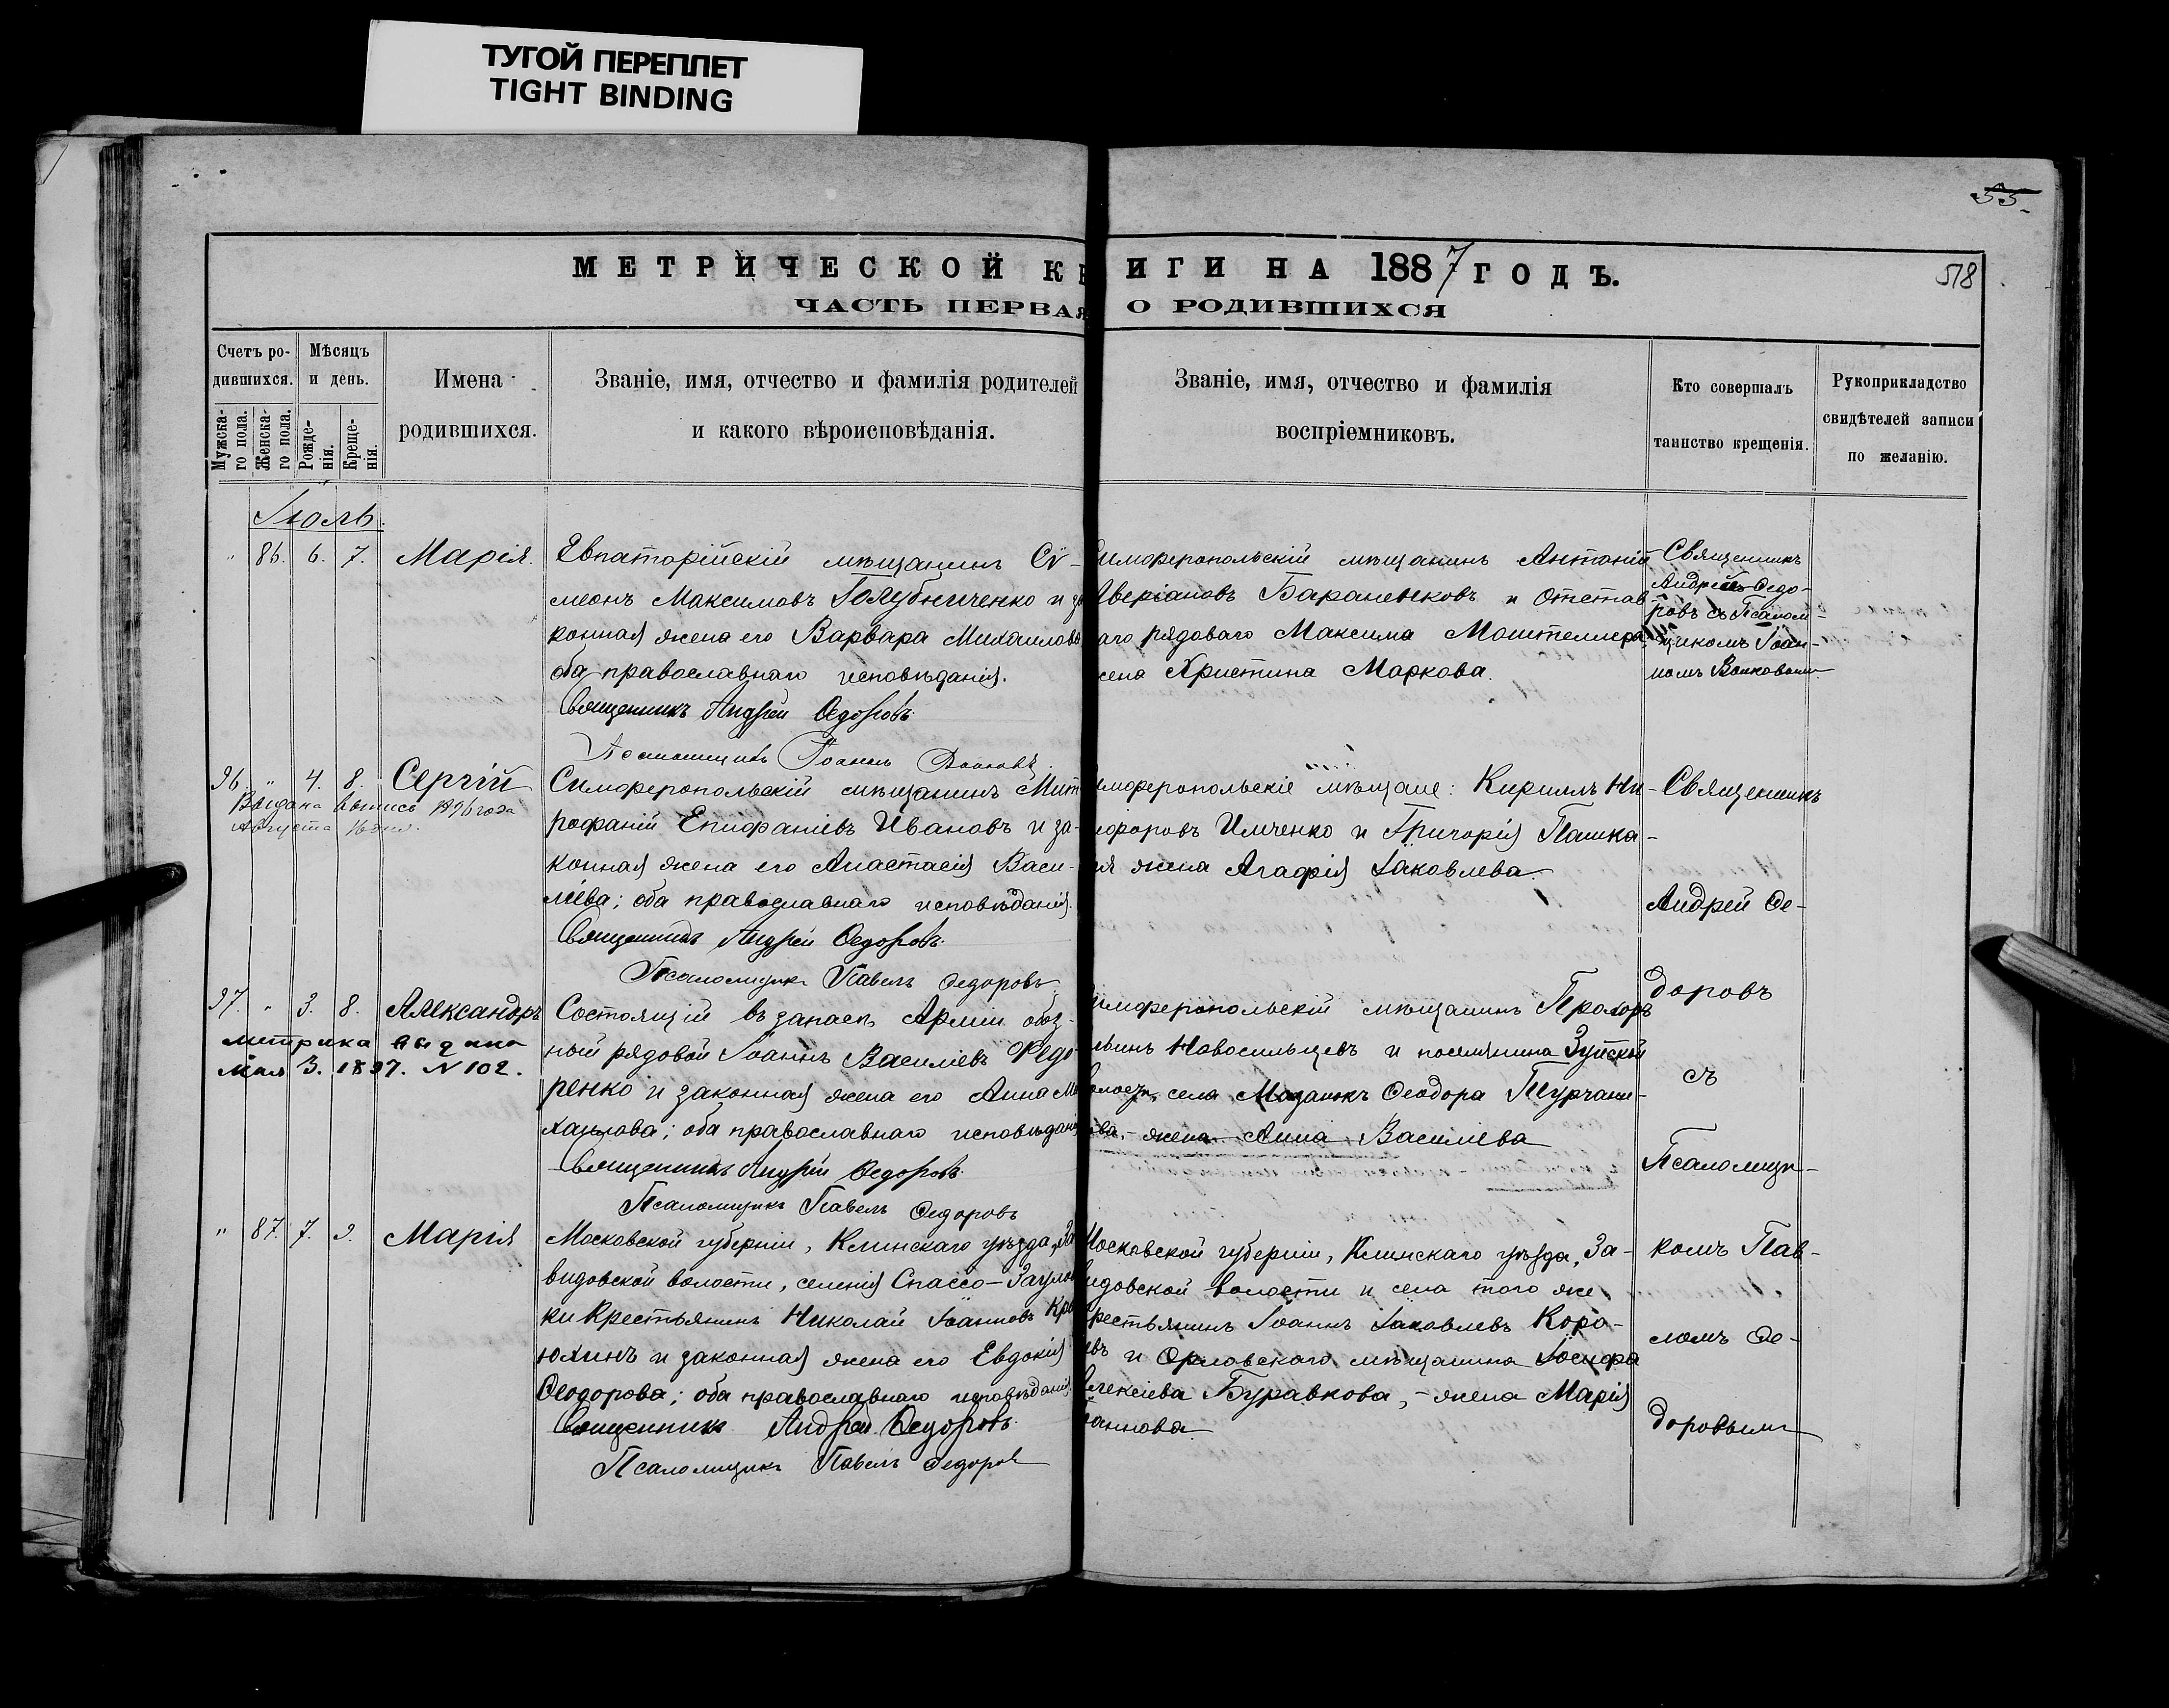 ТУГОЙ ПЕРЕПЛЕТ
TIGHT BINDING
55.
518
МЕТРИЧЕСКОЙ КНИГИ НА 1887 ГОДЪ.
ЧАСТЬ ПЕРВАЯ О РОДИВШИХСЯ
Счетъ ро-
дившихся.
Мужска-
го пола.
Женска-
го пола.
Мѣсяцъ
и день.
Рожде-
нія.
Креще-
нія.
Имена
родившихся.
Званіе, имя, отчество и фамилія родителей
и какого вѣроисповѣданія.
Званіе, имя, отчество и фамилія
воспріемниковъ.
Кто совершалъ
таинство крещенія.
Рукоприкладство
свидѣтелей записи
по желанію.
Іюль.
" 86. 6. 7. Марія.
Евпаторійскій мѣщанинъ Сѵ-
меонъ Максимовъ Голубниченко и за
конная жена его Варвара Михаилова
оба православнаго исповѣданія.
Священникъ Андрей Ѳедоровъ
Псаломщикъ Іоаннъ Волковъ
Симферопольскій мѣщанинъ Антоній
Аверіановъ Бараненковъ и отстав
наго рядоваго Максима Моштеллера
жена Христина Маркова.
Священникъ
Андрей Ѳедо-
ровъ съ Псалом-
щикомъ Іоан-
номъ Волковымъ
96. " 4. 8. Сергій
Выдана выпись 1896 года
Августа 16 дня.
Симферопольскій мѣщанинъ Мит
рофаній Епифаніевъ Ивановъ и за-
конная жена его Анастасія Васи-
лiева; оба православнаго исповѣданія.
Священникъ Андрей Ѳедоровъ
Псаломщикъ Павелъ Ѳедоровъ
Симферопольскіе мѣщане: Кириллъ Ни-
кифоровъ Имченко и Григорія Пашка-
жена Агафія Іаковлева
97. " 3. 8. Александръ
метрика выдана
мая 3. 1897. N 102.
Состоящій въ запасѣ Арміи обоз-
ный рядовой Іоаннъ Василіевъ Федо
ренко и законная жена его Анна Ми
хаилова; оба православнаго исповѣданія
Священникъ Андрей Ѳедоровъ
Псаломщикъ Павелъ Ѳедоровъ
Симферопольскій мѣщанинъ Прохоръ
Новосильцевъ и поселянина Зуйской
волости, села Мазанокъ Ѳеодора Турчани-
нова, - жена Анна Василіева
" 87. 7. 9. Марія
Московской губерніи, Клинскаго уѣзда, За
видовской волости, селенія Спассо-Заулок
ки Крестьянинъ Николай Іоанновъ
юхинъ и законная жена его Евдокія
Ѳеодорова; оба православнаго исповѣданія.
Священникъ Андрей Ѳедоровъ
Псаломщикъ Павелъ Ѳедоровъ
Московской губерніи, Клинскаго уѣзда, За-
видовской волости и села того же
Крестьянинъ Іоаннъ Іаковлевъ Коро-
левъ и Орловскаго мѣщанина Іосифа
Алексіева Буравкова, - жена Марія
Іоаннова
Священникъ
Андрей Ѳе-
доровъ
съ
Псаломщи-
комъ Пав-
ломъ Ѳе-
доровымъ